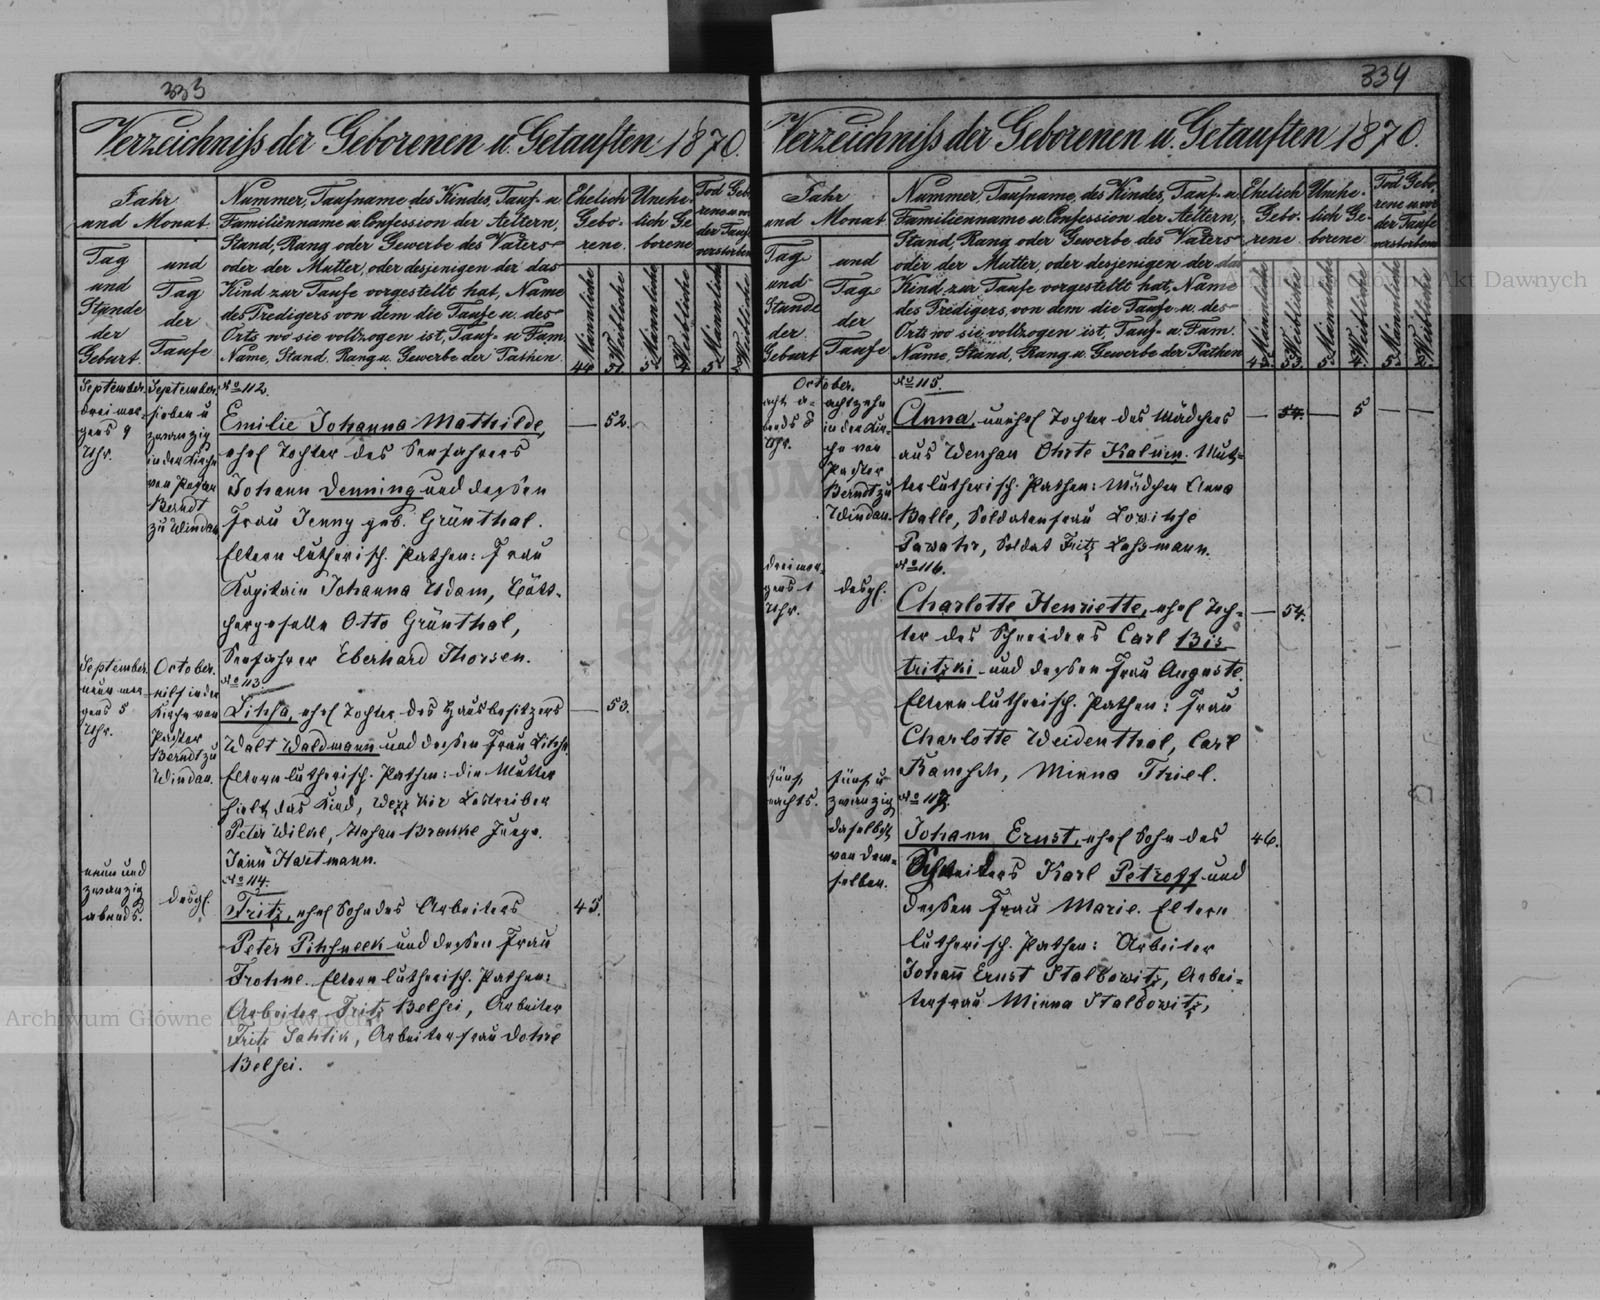 333
Verzeichniss der Geborenen u. Getauften 1870.
Jahr
und Monat
Tag
und
Stunde
der
Geburt
und
Tag
der
Taufe
Nummer, Taufname des Kindes, Tauf- u
Familienname u Confession der Aeltern,
Stand, Rang oder Gewerbe des Vaters
oder der Mutter, oder desjenigen der das
Kind zur Taufe vorgestellt hat, Name
des Predigers von dem die Taufe u. des
Orts wo sie vollzogen ist, Tauf- u Fam.
Name, Stand, Rang u. Gewerbe der Pathen.
Ehelich
Gebo-
rene
Unehe-
lich Ge
borene
Tod Gebo
rene u. vor
der Taufe
verstorbene
Männliche
Weibliche
Männliche
Weibliche
Männliche
Weibliche
44 51
September.
drei mor-
gens 9
Uhr.
September.
sieben u
zwanzig
in der Kirche
von Pastor
Berndt
zu Windau
No 112.
Emilie Johanna Mathilde,
ehel Tochter des Seefahrers
Johann Denning und dessen
Frau Jenny geb. Grünthal.
Eltern lutherisch. Pathen: Frau
Kapitain Johanna Adam, Bött-
chergeselle Otto Grünthal,
Seefahrer Eberhard Thorsen.
— 52.
September.
neun mor-
gens 5
Uhr.
October.
eilf in der
Kirche von
Pastor
Berndt zu
Windau.
No 113.
Lihsa, ehel Tochter des Hausbesitzers
Walt Waldmann und dessen Frau Lihse
Eltern lutherisch. Pathen: die Mutter
hielt das Kind,
Peter Wilke,
Jann Hartmann.
— 53.
neun und
zwanzig
abends.
desgl.
No 114.
Fritz, ehel Sohn des Arbeiters
Peter Pihsneek und dessen Frau
Trohne. Eltern lutherisch. Pathen:
Arbeiter Fritz Belsei, Arbeiter
Fritz Sahlik, Arbeiterfrau Dohre
Belsei.
45.
334
Verzeichniss der Geborenen u. Getauften 1870.
Jahr
und Monat
Tag
und
Stunde
der
Geburt
und
Tag
der
Taufe
Nummer, Taufname, des Kindes, Tauf- u
Familienname u Confession der Aeltern,
Stand, Rang oder Gewerbe des Vaters
oder der Mutter, oder desjenigen der das
Kind zur Taufe vorgestellt hat, Name
des Predigers, von dem die Taufe u. des
Orts wo sie vollzogen ist, Tauf- u. Fam.
Name, Stand, Rang u. Gewerbe der Pathen
Ehelich
Gebo-
rene
Unehe-
lich Ge-
borene
Tod Gebo
rene u. vor
der Taufe
verstorbene
Männliche
Weibliche
Männliche
Weibliche
Männliche
Weibliche
45 53. 5 4. 5 2.
October.
acht a-
bends 8
Uhr.
achtzehn
in der Kir-
che von
Pastor
Berndt zu
Windau.
No 115.
Anna, unehel Tochter des Mädchens
aus Wensau Ohrte Kalnin. Mut-
ter lutherisch. Pathen: Mädchen Anna
Balle, Soldatenfrau Lowihse
Pawahr, Soldat Fritz Lassmann.
— 54. — 5 — —
drei mor-
gens 1
Uhr.
desgl.
No 116.
Charlotte Henriette, ehel Toch-
ter des Schneiders Carl Bis
tritzki und dessen Frau Auguste.
Eltern lutherisch. Pathen: Frau
Charlotte Weidenthal, Carl
Minna Thiel.
— 54.
fünf
nachts.
fünf u
zwanzig
daselbst
von dem-
selben.
No 117.
Johann Ernst, ehel Sohn des
Karl Petroff und
dessen Frau Marie. Eltern
lutherisch. Pathen: Arbeiter
Johann Ernst Stalbowitz, Arbei-
terfrau Minna Stalbowitz,
46.
Archiwum Główne Akt Dawnych
Archiwum Główne Akt Dawnych